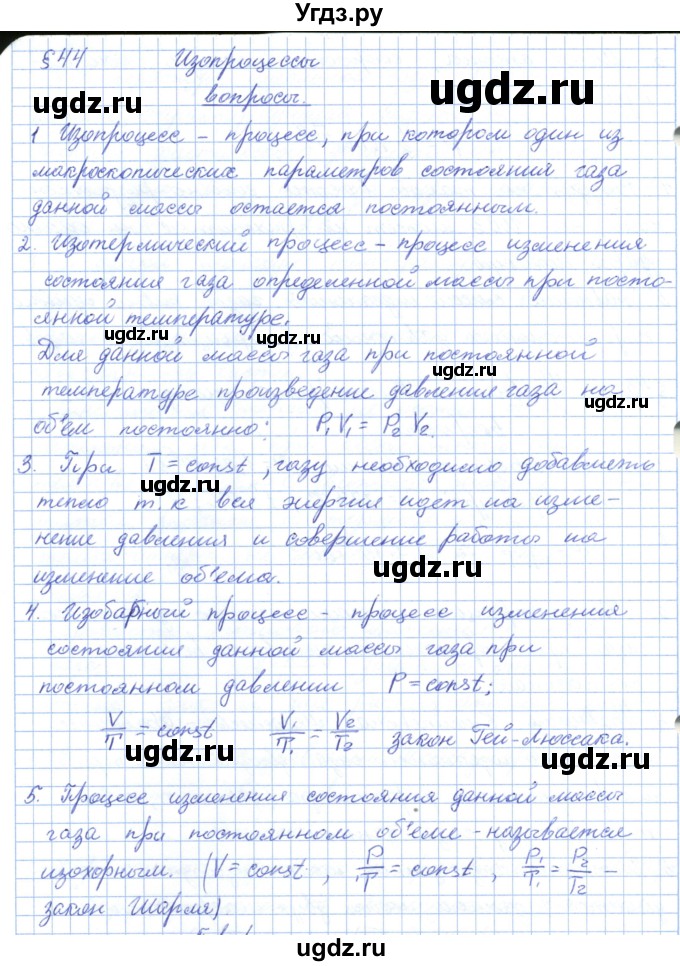 Угдз.ру
§44 Изопроцессы
ugdz.ru ugdz.ru
вопросы.
1 Изопроцесс – процесс, при котором один из
макроскопических параметров состояния газа
данной массы остается постоянным.
ugdz.ru ugdz.ru
2. Изотермический процесс – процесс изменения
состояния газа определенной массы при посто-
янной температуре.
ugdz.ru
Для данной массы газа при постоянной
ugdz.ru
температуре произведение давления газа на
ugdz.ru
объем постоянно: P₁V₁ = P₂V₂.
3. При T = const, газу необходимо добавлять
тепло т.к вся энергия идет на изме-
ugdz.ru
нение давления и совершение работы на
ugdz.ru
изменение объема.
4. Изобарный процесс – процесс изменения
ugdz.ru
состояния данной массы газа при
постоянном давлении P = const;
V/T = const V₁/T₁ = V₂/T₂ закон Гей-Люссака.
ugdz.ru ugdz.ru
5. Процесс изменения состояния данной массы
газа при постоянном объеме - называется
изохорным. (V = const, P/T = const, P₁/T₁ = P₂/T₂ –
закон Шарля)
ugdz.ru ugdz.ru